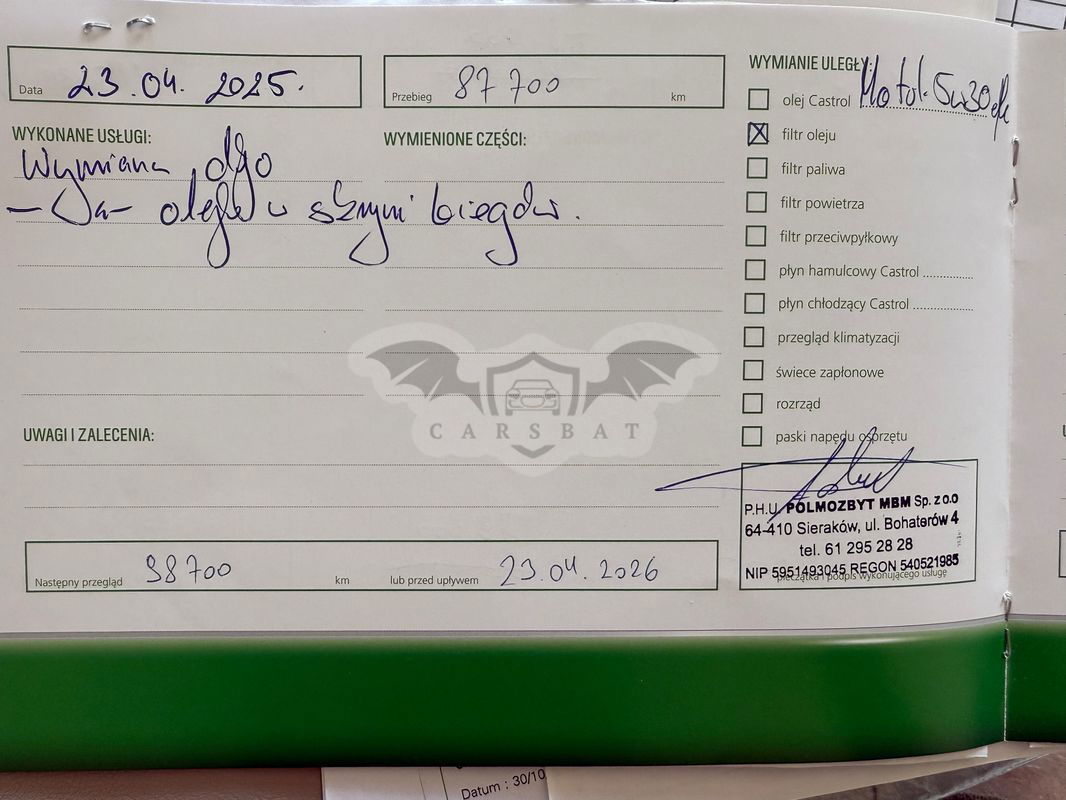 Data 23.04.2025.
Przebieg 87 700 km
WYKONANE USŁUGI:
Wymiana
oleju w skrzyni biegów.
WYMIENIONE CZĘŚCI:
WYMIANIE ULEGŁY:
olej Castrol Motul 5w30
filtr oleju
filtr paliwa
filtr powietrza
filtr przeciwpyłkowy
płyn hamulcowy Castrol
płyn chłodzący Castrol
przegląd klimatyzacji
świece zapłonowe
rozrząd
paski napędu osprzętu
UWAGI I ZALECENIA:
CARSBAT
P.H.U. POLMOZBYT MBM Sp. z o.o
64-410 Sieraków, ul. Bohaterów 4
tel. 61 295 28 28
NIP 5951493045 REGON 540521985
pieczątka i podpis wykonującego usługę
Następny przegląd 98700 km lub przed upływem 23.04.2026
Datum : 30/10